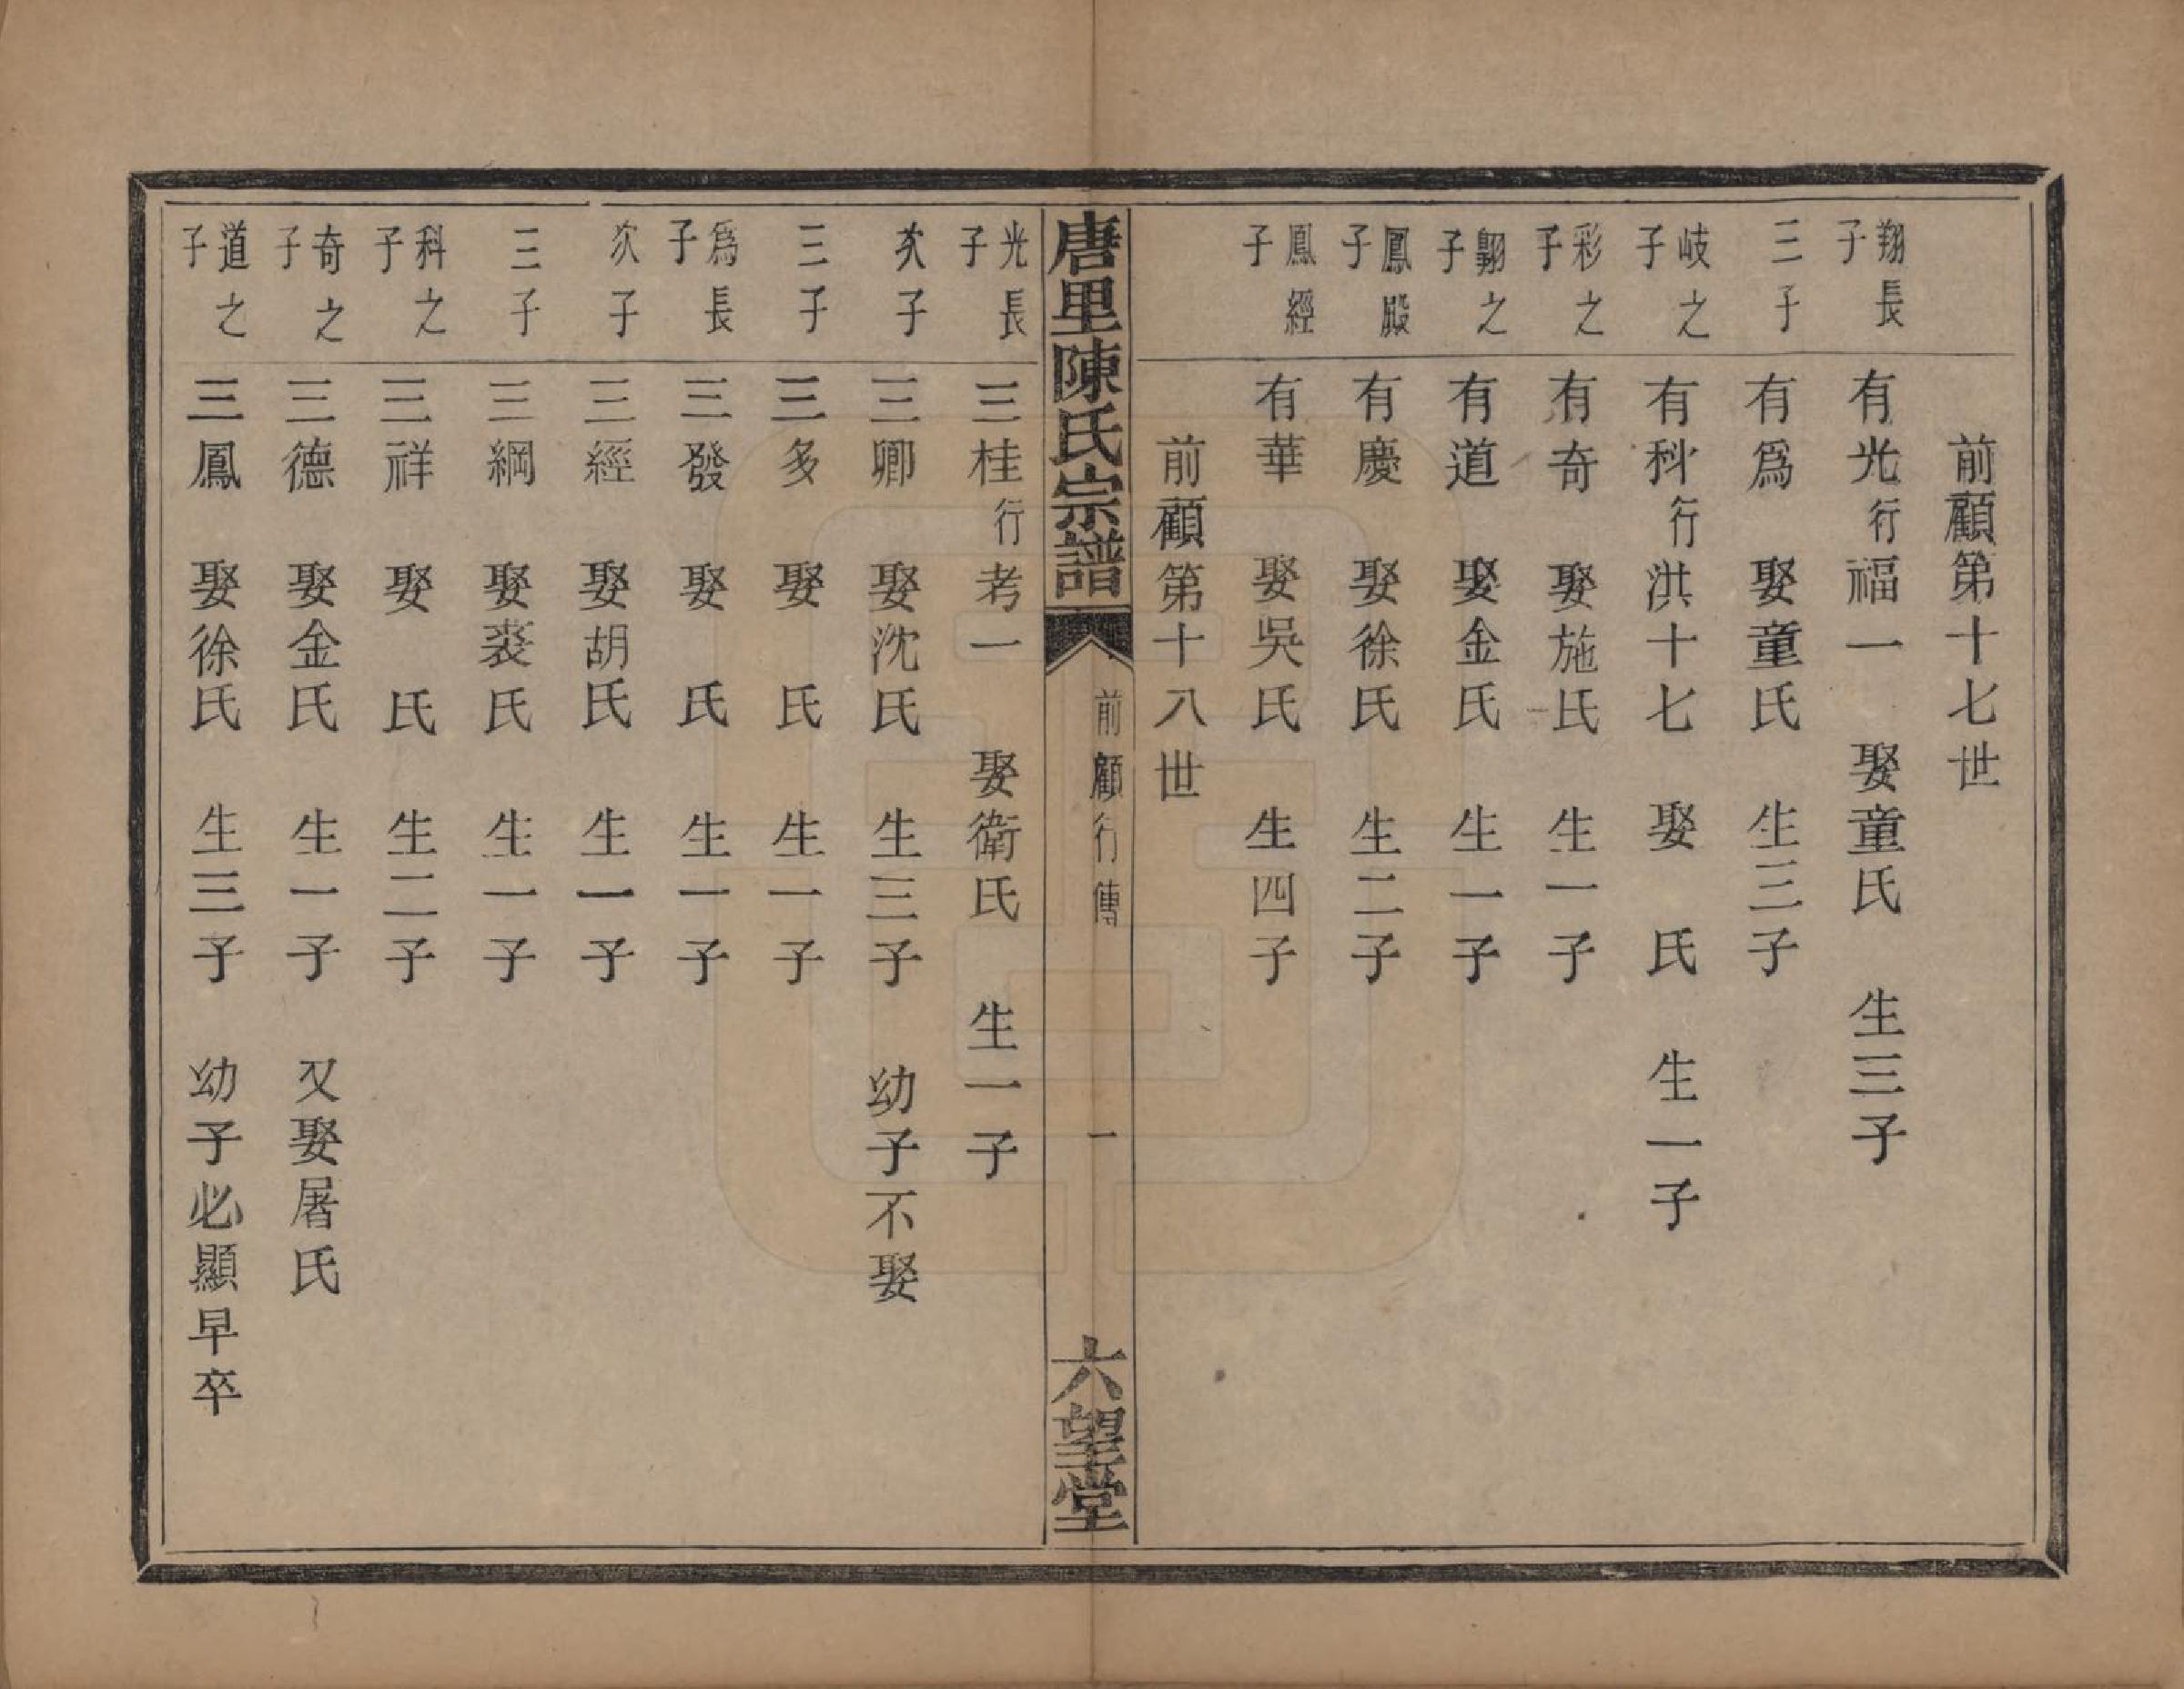 前顧第十七世
翔長子 有光行福一 娶童氏 生三子
三子 有爲 娶童氏 生三子
岐之子 有科行洪十七 娶 氏 生一子
彩之子 有奇 娶施氏 生一子
翺之子 有道 娶金氏 生一子
鳳殿子 有慶 娶徐氏 生二子
鳳經子 有華 娶吳氏 生四子
前顧第十八世
唐里陳氏宗譜 前顧行傳 一 六望堂
光長子 三桂行考一 娶衛氏 生一子
次子 三卿 娶沈氏 生三子 幼子不娶
三子 三多 娶 氏 生一子
爲長子 三發 娶 氏 生一子
次子 三經 娶胡氏 生一子
三子 三綱 娶裘氏 生一子
科之子 三祥 娶 氏 生二子
奇之子 三德 娶金氏 生一子 又娶屠氏
道之子 三鳳 娶徐氏 生三子 幼子必顯早卒